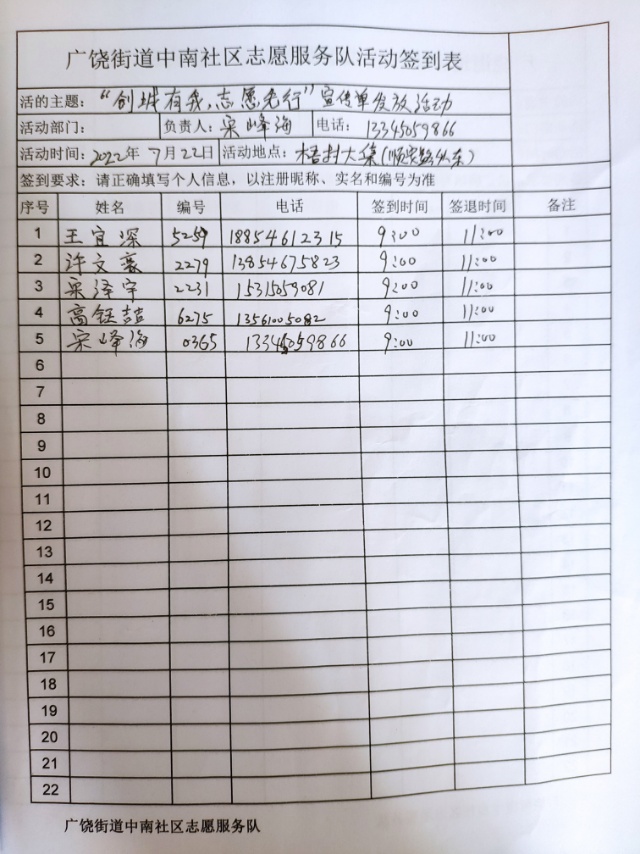 广饶街道中南社区志愿服务队活动签到表
活的主题：“创城有我，志愿先行”宣传单发放活动
活动部门： 负责人：宋峰海 电话：13345059866
活动时间：2022年7月22日 活动地点：梧村大集（顺安路以东）
签到要求：请正确填写个人信息，以注册昵称、实名和编号为准
序号 姓名 编号 电话 签到时间 签退时间 备注
1 王宜深 5259 18854612315 9:00 11:00
2 许文豪 2279 13854675823 9:00 11:00
3 宋泽宇 2231 15315059081 9:00 11:00
4 高钰喆 6275 13561005082 9:00 11:00
5 宋峰海 0365 13345059866 9:00 11:00
6
7
8
9
10
11
12
13
14
15
16
17
18
19
20
21
22
广饶街道中南社区志愿服务队